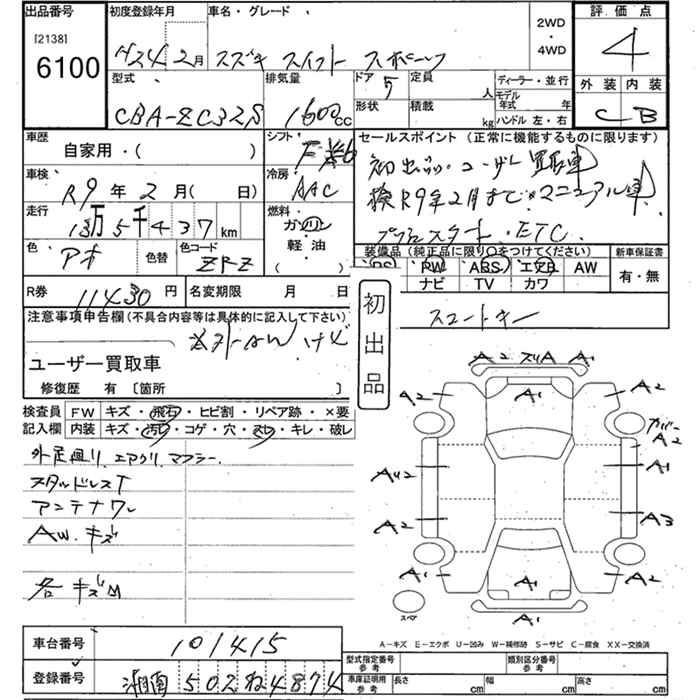 出品番号 初度登録年月 車名・グレード 評価点
[2138] 6100 H24年2月 スズキ スイフト スポーツ 2WD・4WD 4
型式 排気量 ドア 定員 ディーラー・並行 外装 内装
CBA-ZC32S 1600cc 5 人 モデル年式 年 C B
形状 積載 kg ハンドル 左・右
車歴 シフト セールスポイント (正常に機能するものに限ります)
自家用・( ) F 6 初出品・ユーザー買取車
車検 冷房 検R9年2月まで・マニュアル車
R9年2月(日) AAC プッシュスタート・ETC.
走行 燃料
13万5千437km ガソリン
色 色替 色コード 軽油 装備品 (純正品に限り○をつけてください) 新車保証書
アオ ZRZ ( ) PS PW ABS エアB AW 有・無
ナビ TV カワ
R券 11430円 名変期限 月 日 初出品 スマートキー
注意事項申告欄(不具合内容等は具体的に記入して下さい)
ユーザー買取車
修復歴 有 [箇所 ]
検査員 FW キズ・飛石・ヒビ割・リペア跡・×要
記入欄 内装 キズ・汚れ・コゲ・穴・スレ・キレ・破レ
外足廻り.エアクリ.マフラー
スタッドレスT
アンテナワレ
AW.キズ
各キズ凹
A2 スリA A1
A2 A1 A2
カバー A2
AU2 A1
A2 A3
A1 A1 A2
A1
スペア
A-キズ E-エクボ U-凹み W-補修跡 S-サビ C-腐食 XX-交換済
車台番号 101415
型式指定番号 参考 類別区分番号 参考
登録番号 湘南 502 ね 4874
車庫証明用 参考 長さ cm 幅 cm 高さ cm